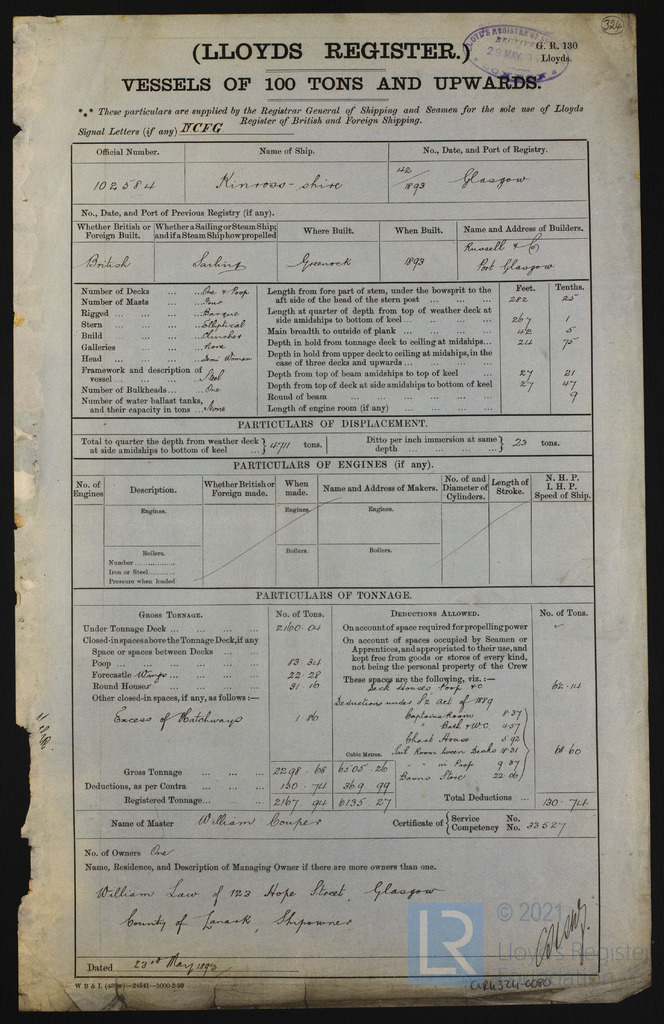 324
(LLOYDS REGISTER.)
G. R. 130
Lloyds.
29 MAY
VESSELS OF 100 TONS AND UPWARDS.
*** These particulars are supplied by the Registrar General of Shipping and Seamen for the sole use of Lloyds
Register of British and Foreign Shipping.
Signal Letters (if any) NCFG
Official Number. Name of Ship. No., Date, and Port of Registry.
102584 Kinross-shire 42/1893 Glasgow
No., Date, and Port of Previous Registry (if any).
Whether British or Foreign Built. Whether a Sailing or Steam Ship; and if a Steam Ship how propelled Where Built. When Built. Name and Address of Builders.
British Sailing Greenock 1893 Russell & Co Port Glasgow
Number of Decks ... One & Poop
Number of Masts ... Four
Rigged ... Barque
Stern ... Elliptical
Build ... Clincher
Galleries ... None
Head ... Demi Woman
Framework and description of vessel ... Steel
Number of Bulkheads ... One
Number of water ballast tanks, and their capacity in tons ... None
Feet. Tenths.
Length from fore part of stem, under the bowsprit to the aft side of the head of the stern post ... 282 25
Length at quarter of depth from top of weather deck at side amidships to bottom of keel ... 267 1
Main breadth to outside of plank ... 42 5
Depth in hold from tonnage deck to ceiling at midships ... 24 75
Depth in hold from upper deck to ceiling at midships, in the case of three decks and upwards ...
Depth from top of beam amidships to top of keel ... 27 21
Depth from top of deck at side amidships to bottom of keel 27 47
Round of beam ... 9
Length of engine room (if any) ...
PARTICULARS OF DISPLACEMENT.
Total to quarter the depth from weather deck at side amidships to bottom of keel ... 4711 tons. Ditto per inch immersion at same depth ... 23 tons.
PARTICULARS OF ENGINES (if any).
No. of Engines Description. Whether British or Foreign made. When made. Name and Address of Makers. No. of and Diameter of Cylinders. Length of Stroke. N. H. P. I. H. P. Speed of Ship.
Engines. Engines. Engines.
Boilers. Boilers. Boilers.
Number
Iron or Steel
Pressure when loaded
PARTICULARS OF TONNAGE.
GROSS TONNAGE. No. of Tons. DEDUCTIONS ALLOWED. No. of Tons.
Under Tonnage Deck ... 2160.04
Closed-in spaces above the Tonnage Deck, if any
Space or spaces between Decks ...
Poop ... 83.34
Forecastle Wings ... 22.28
Round House ... 31.16
Other closed-in spaces, if any, as follows:—
Excess of Hatchways 1.86
Cubic Metres.
Gross Tonnage ... 2298.68 6505.26
Deductions, as per Contra ... 130.74 369.99
Registered Tonnage ... 2167.94 6135.27
On account of space required for propelling power
On account of spaces occupied by Seamen or Apprentices, and appropriated to their use, and kept free from goods or stores of every kind, not being the personal property of the Crew
These spaces are the following, viz.:—
Deck Houses Poop &c 62.14
Deductions under Sz Act of 1889
Captains Room 8.37
" Bath & W.C. 4.57
Chart House 5.92
Sail Room tween Decks 18.31
" " in Poop 9.37
Bosuns Store 22.06
68.60
Total Deductions ... 130.74
Name of Master William Couper Certificate of Service No. Competency No. 33527
No. of Owners One
Name, Residence, and Description of Managing Owner if there are more owners than one.
William Law of 123 Hope Street, Glasgow
County of Lanark, Shipowner
Dated 23rd May 1893
LR
© 2021
Lloyd's Register
Foundation